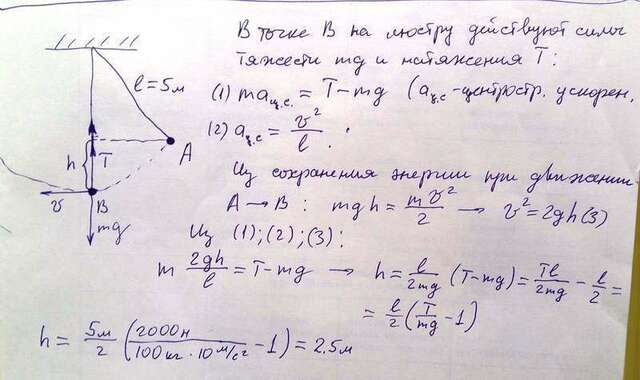 l = 5м
h
T
A
v
B
mg
В точке В на люстру действуют силы
тяжести mg и натяжения T:
(1) ma_ц.с. = T - mg (a_ц.с - центростр. ускорен.
(2) a_ц.с = v²/l .
Из сохранения энергии при движении
A → B : mgh = mv²/2 → v² = 2gh (3)
Из (1); (2); (3):
m 2gh/l = T - mg → h = l/2mg (T - mg) = Tl/2mg - l/2 =
= l/2 (T/mg - 1)
h = 5м/2 (2000н/100кг · 10 м/с² - 1) = 2,5м